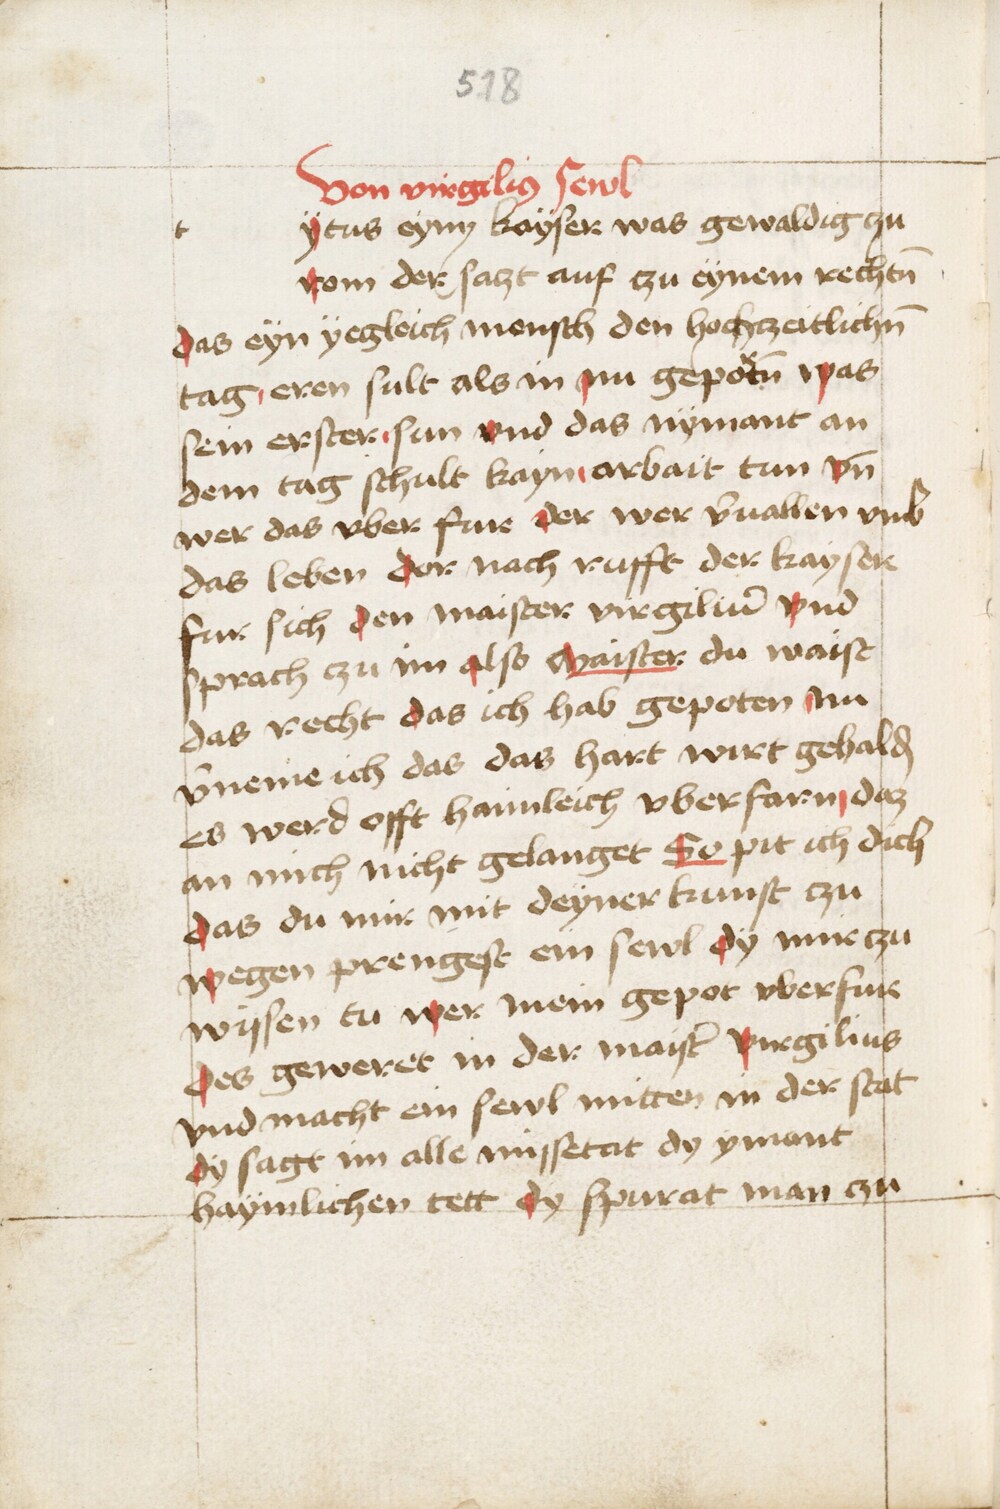 518
Von virgilius sewl
t ÿtus eyns kaÿser was gewaldig zu
rom der satzt auf czu eÿnem rechtn̄
das eÿn ÿegleich mensch den hochczeitlichn̄
tag eren sult als in im gepoten was
sein erster sun vnd das nÿmant an
dem tag schult kayn arbait tun vn̄
wer das vber fur der wer v̄uallen vmb
das leben dor nach rufft der kaÿser
fur sich den maister virgiliū vnd
sprach czu im also Maister du waist
das recht das ich hab gepoten Nu
v̄neme ich das das hart wirt gehaldn̄
es werd offt haimleich vberfarn daz
an mich nicht gelanget So pit ich dich
das du mir mit deÿner kunst czu
wegen prengest ein sewl dÿ mir czu
wissen tu wer mein gepot vberfur
des geweret in der maist̄ virgilius
vnd macht ein sewl mitten in der stat
dÿ sagt im alle missetat dy ymant
haÿmlichen tett dy spurat man czu